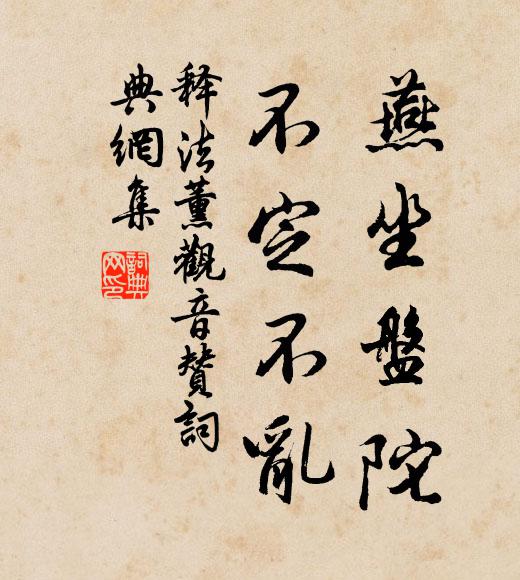 燕坐盤陀
不定不亂
释法薰觀音赞詞
典網集
詞典網印